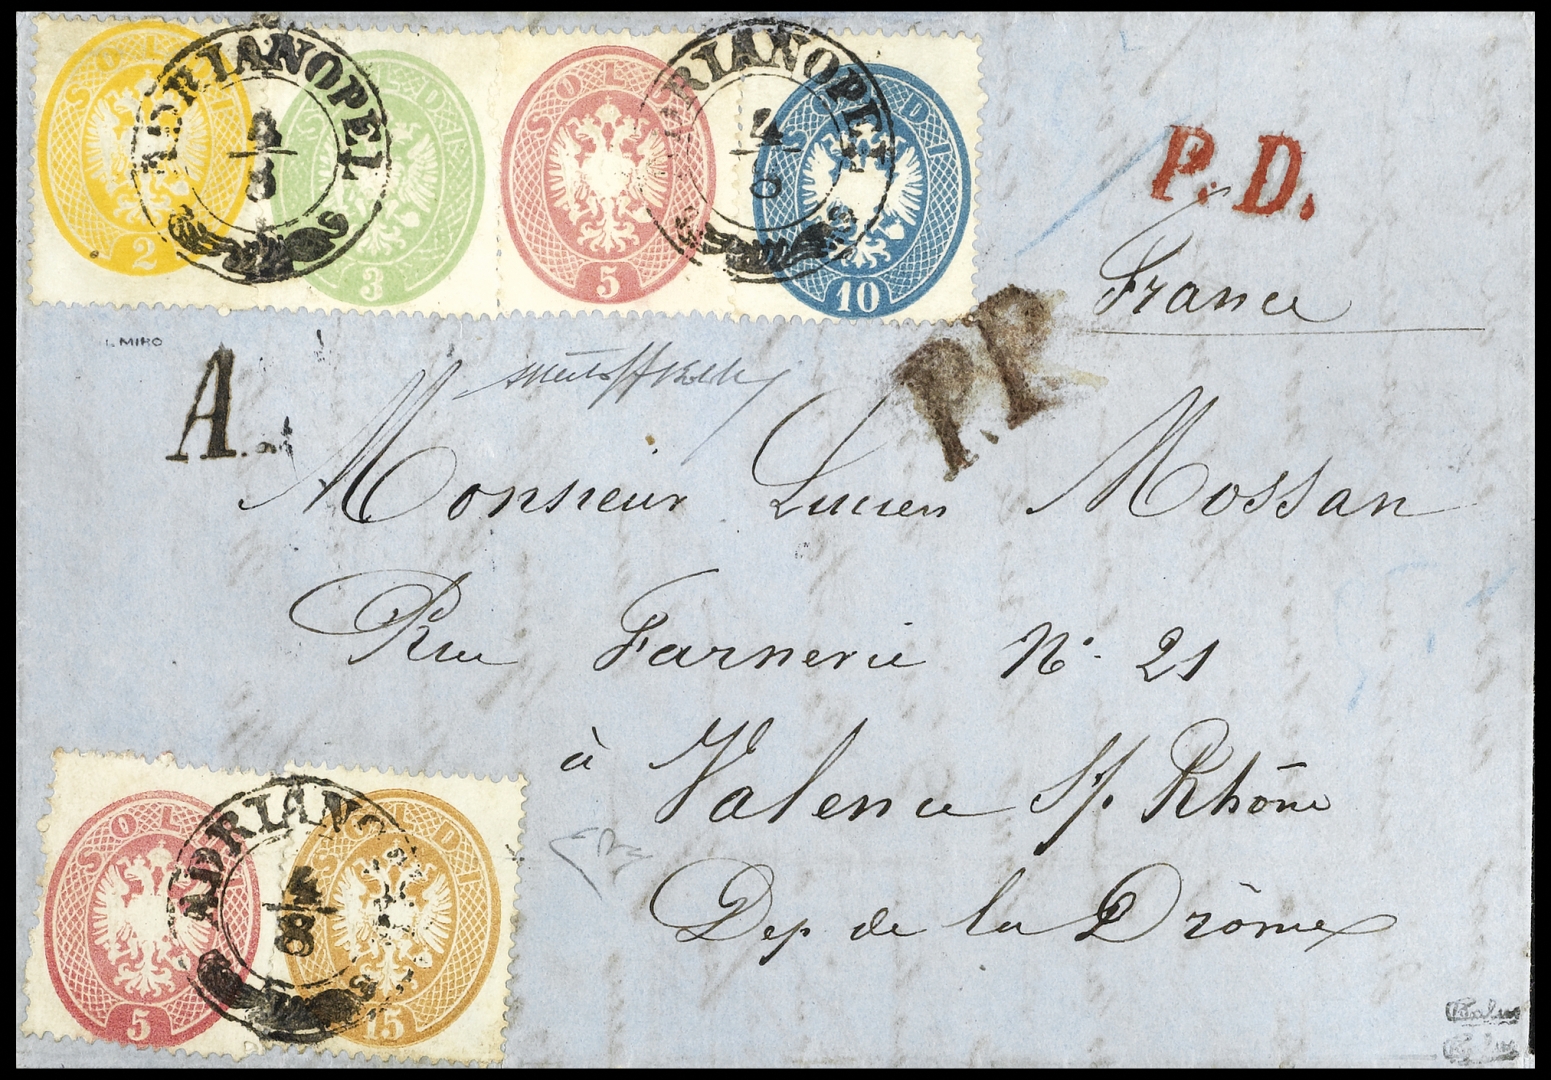 SOLDI 2
SOLDI 3
SOLDI 5
SOLDI 10
ADRIANOPEL 4/8
ADRIANOPEL 4
P. D.
France
MIRO
A.
P.P.
Monsieur Lucien Mossan
Rue Farnerie N° 21
à Valence S/. Rhône
Dep de la Drôme
SOLDI 5
SOLDI 15
ADRIANO 4/8